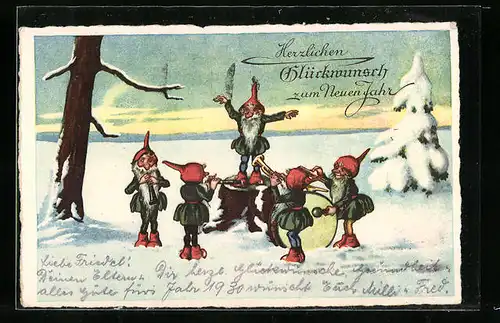 Herzlichen
Glückwunsch
zum Neuen Jahr
Liebe Friedel!
Deinen Eltern + Dir herzl. Glückwünsche, Gesundheit,
alles Gute fürs Jahr 1930 wünscht Euch Milli + Fred.